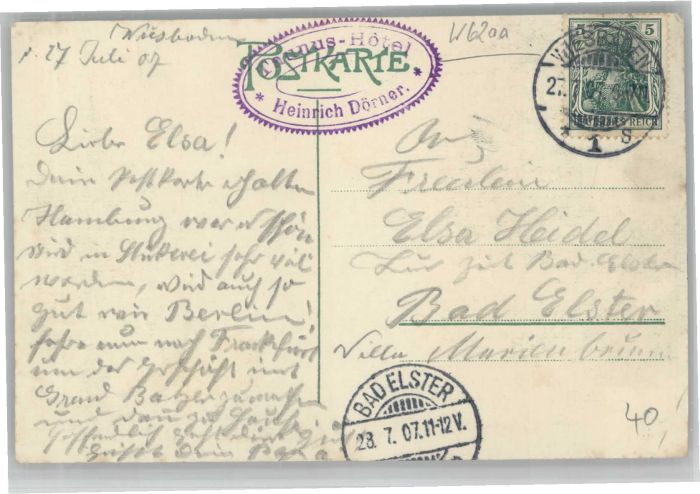 Wiesbaden
27 Juli 07
W620a
POSTKARTE.
Taunus-Hôtel
* Heinrich Dörner. *
5
DEUTSCHES REICH
WIESBADEN
27.7.07
* 1 s
Liebe Elsa!
Dein Postkarte erhalten
Hamburg war schön
wird in Stickerei sehr viel
worden, wird auch so
gut wie Berlin!
fahre nun nach Frankfurt
um das Geschäft mit
Grand Bazar zu machen
und dann zu Hause
Hoffentlich geht
Papa
An
Fräulein
Elsa Heidel
zur Zeit Bad Elster
Bad Elster
Villa Marienbrunn
BAD ELSTER
28.7.07.11-12V.
40